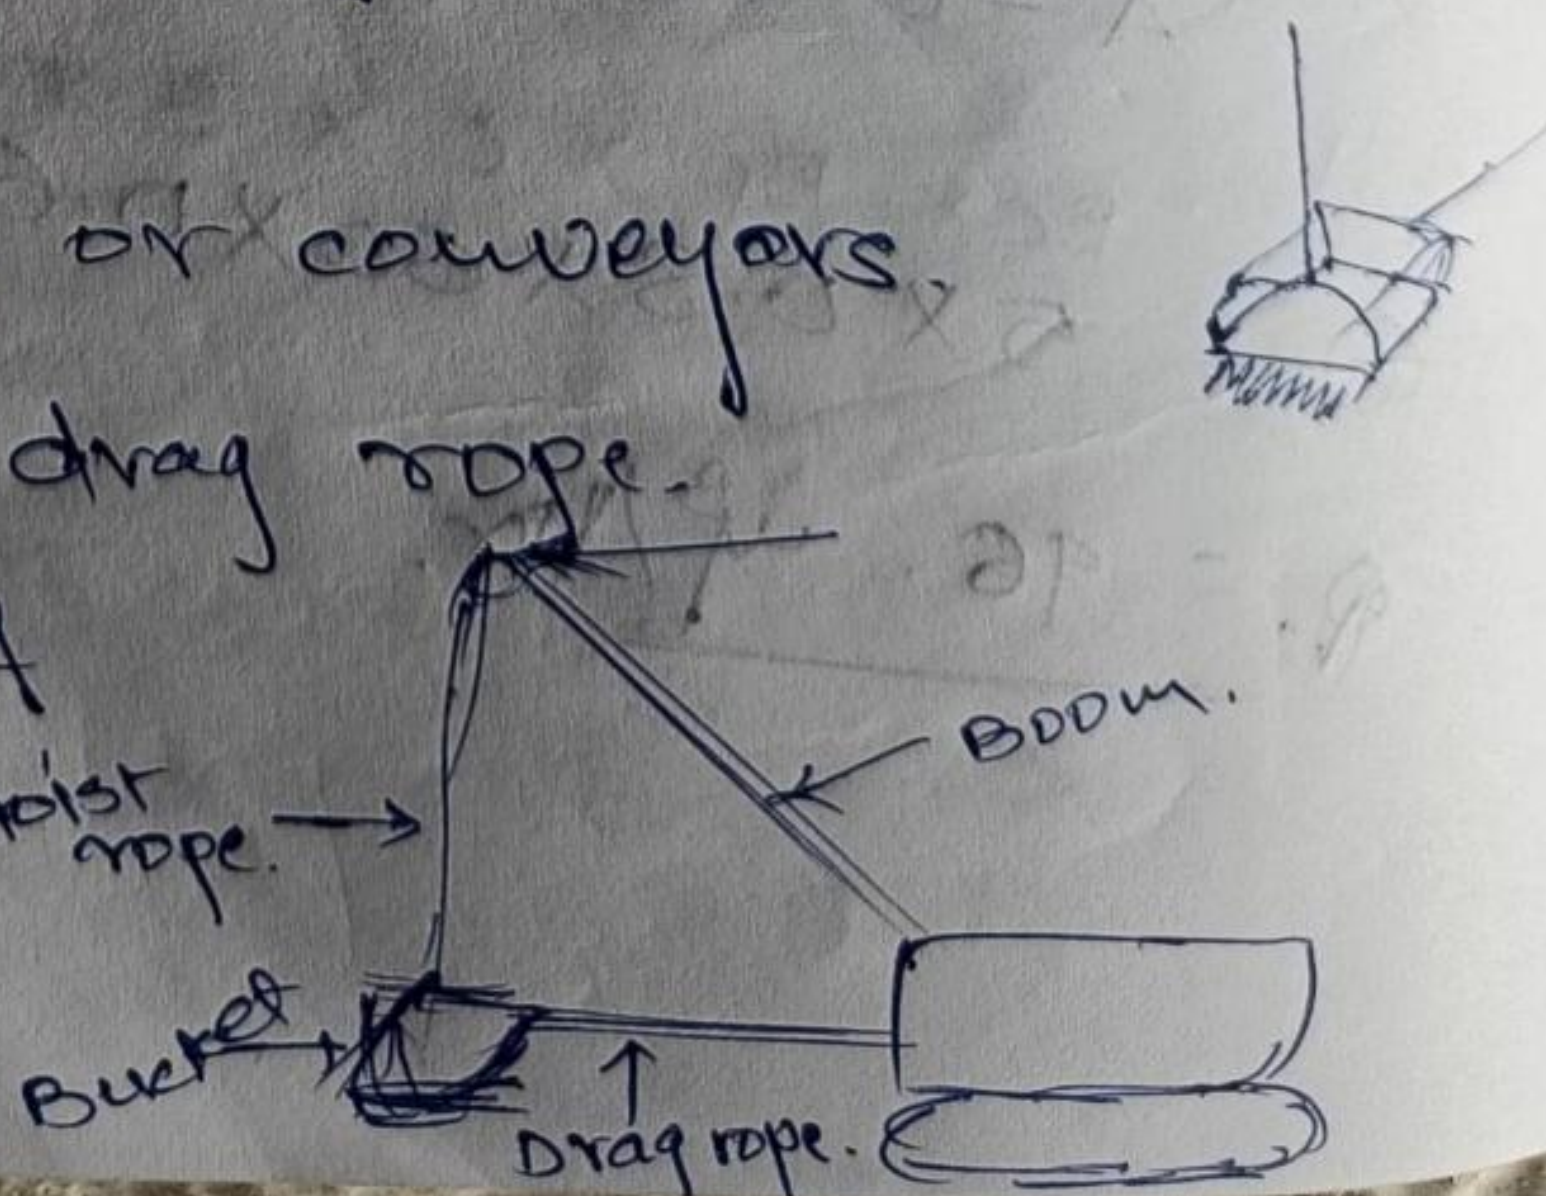 or conveyors.
drag rope.
BOOM.
oist
rope.
Bucket
Drag rope.